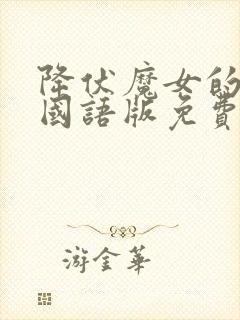 降伏魔女的
國語版免費
游金華